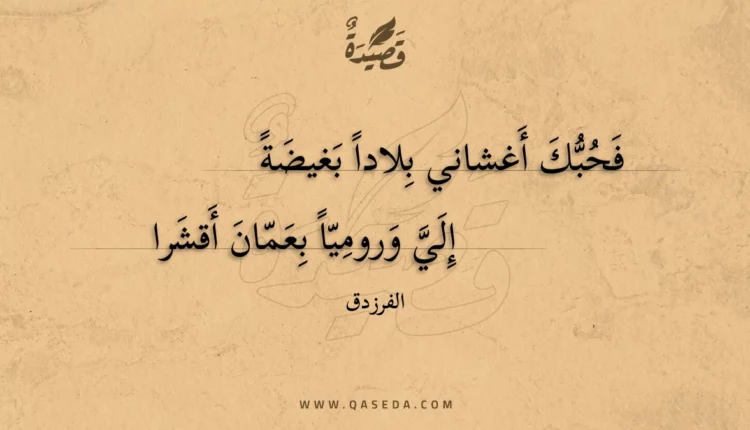 قَصِيْدَةٌ
فَحُبُّكَ أَغشاني بِلاداً بَغيضَةً
إِلَيَّ وَرومِيّاً بِعَمّانَ أَقشَرا
الفرزدق
WWW.QASEDA.COM